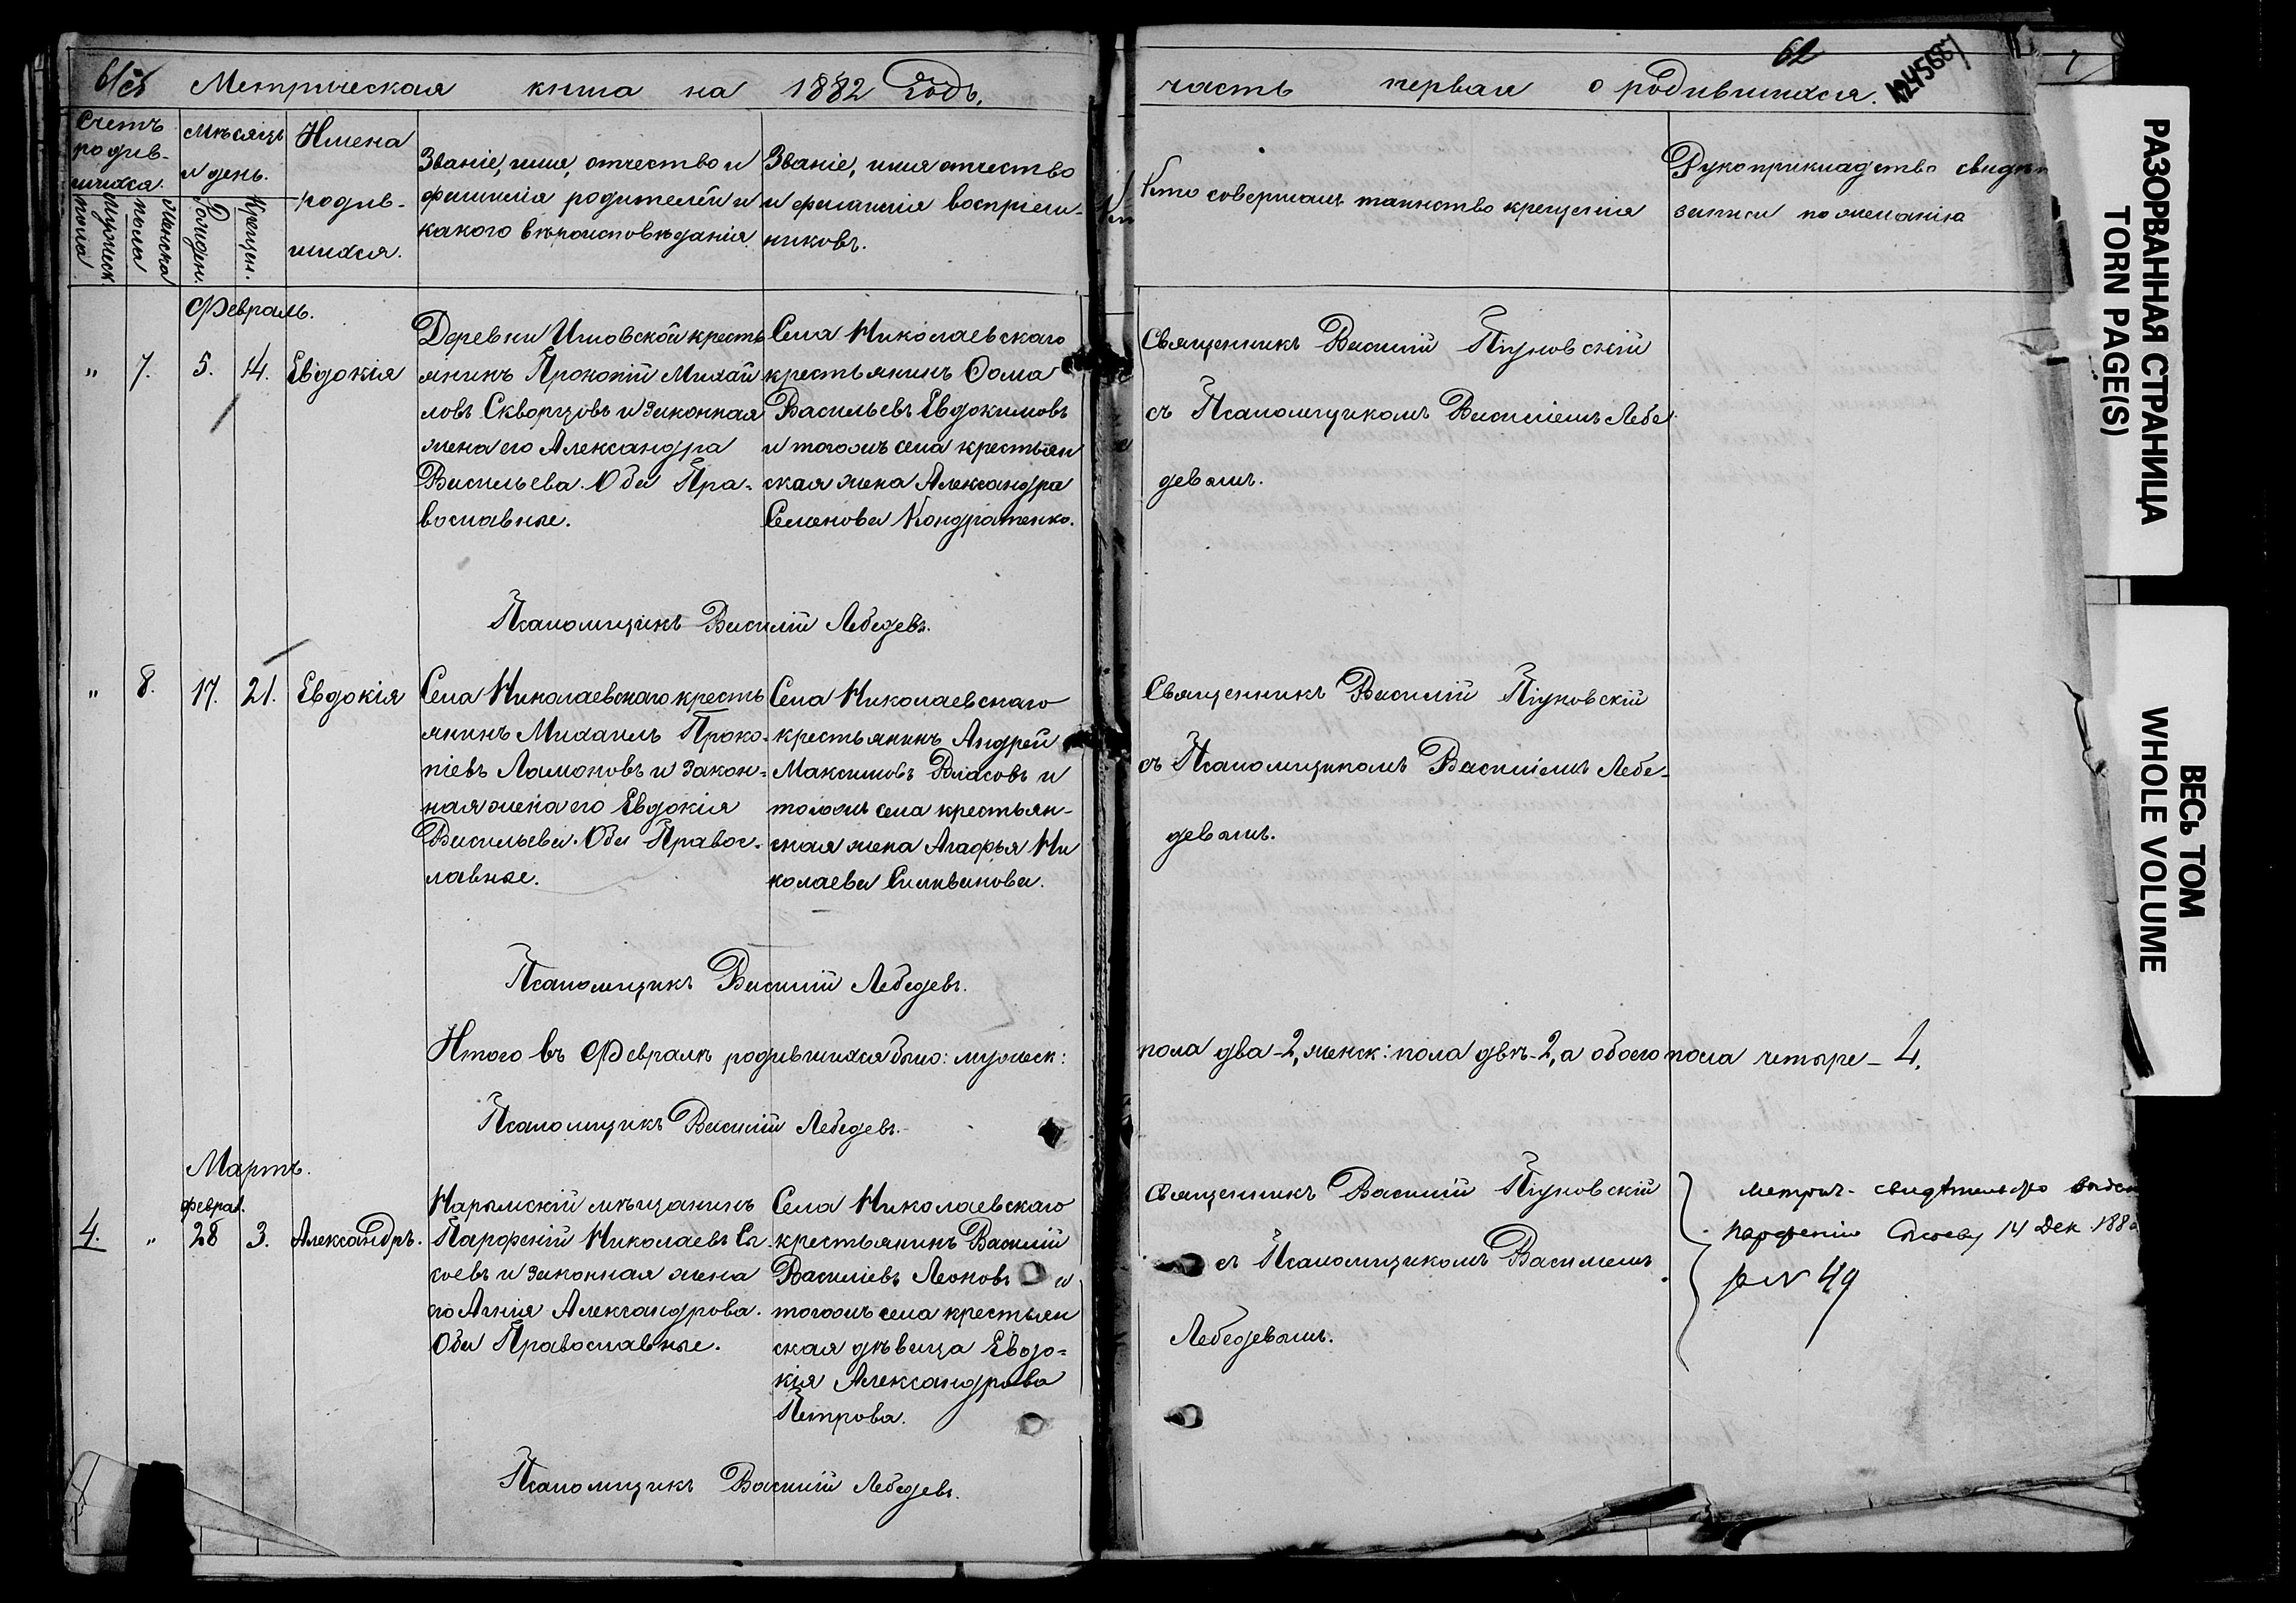 Метрическая книга на 1882 Годъ.
часть первая о родившихся.
62
1245687
Счетъ родив-шихся.
мужеск пола
женска пола
мѣсяцъ и день.
Рожден.
Крещен.
Имена
родив-
шихся.
Званіе, имя, отчество и
фамилія родителей и
какого вѣроисповѣданія.
Званіе, имя отчество
и фамилія воспріем-
никовъ.
Кто совершалъ таинство крещенія
Рукоприкладство
записи по желанію
Февраль.
" 7. 5. 14. Евдокія
Деревни крестья
янинъ Прокопій Михай
ловъ Скворцовъ и законная
жена его Александра
Васильева. Оба Пра-
вославные.
Села Николаевскаго
крестьянинъ Ѳома
Васильевъ Евдокимовъ
и тогожъ села крестьян
ская жена Александра
Семенова Кондратенко.
Священникъ Василій Піуновскій
съ Псаломщикомъ Василіемъ Лебе
девымъ.
Псаломщикъ Василій Лебедевъ.
" 8. 17. 21. Евдокія
Села Николаевскаго кресть
янинъ Михаилъ Проко-
піевъ Ламоновъ и закон-
ная жена его Евдокія
Васильева. Оба Правос-
лавные.
Села Николаевскаго
крестьянинъ Андрей
Максимовъ Власовъ и
тогожъ села крестьян-
ская жена Агафья Ни
колаева Силиванова.
Священникъ Василій Піуновскій
съ Псаломщикомъ Василіемъ Лебе-
девымъ.
Псаломщикъ Василій Лебедевъ.
Итого въ Февралѣ родившихся было: мужеск:
пола два-2, женск: пола двѣ-2, а обоего пола четыре-4.
Псаломщикъ Василій Лебедевъ.
Мартъ.
феврал.
4. " 28 3. Александръ.
Нарымскій мѣщанинъ
Парфеній Николаевъ Сы-
соевъ и законная жена
его Агнія Александрова.
Оба Православные.
Села Николаевскаго
крестьянинъ Василій
Василіевъ Леоновъ и
тогожъ села крестьян
ская дѣвица Евдо=
кія Александрова
Петрова.
Священникъ Василій Піуновскій
съ Псаломщикомъ Василіемъ
Лебедевымъ.
Метрич. свидѣтельство
Парфенію Сысоеву 14 Дек
№ 49
Псаломщикъ Василій Лебедевъ.
РАЗОРВАННАЯ СТРАНИЦА
TORN PAGE(S)
ВЕСЬ ТОМ
WHOLE VOLUME